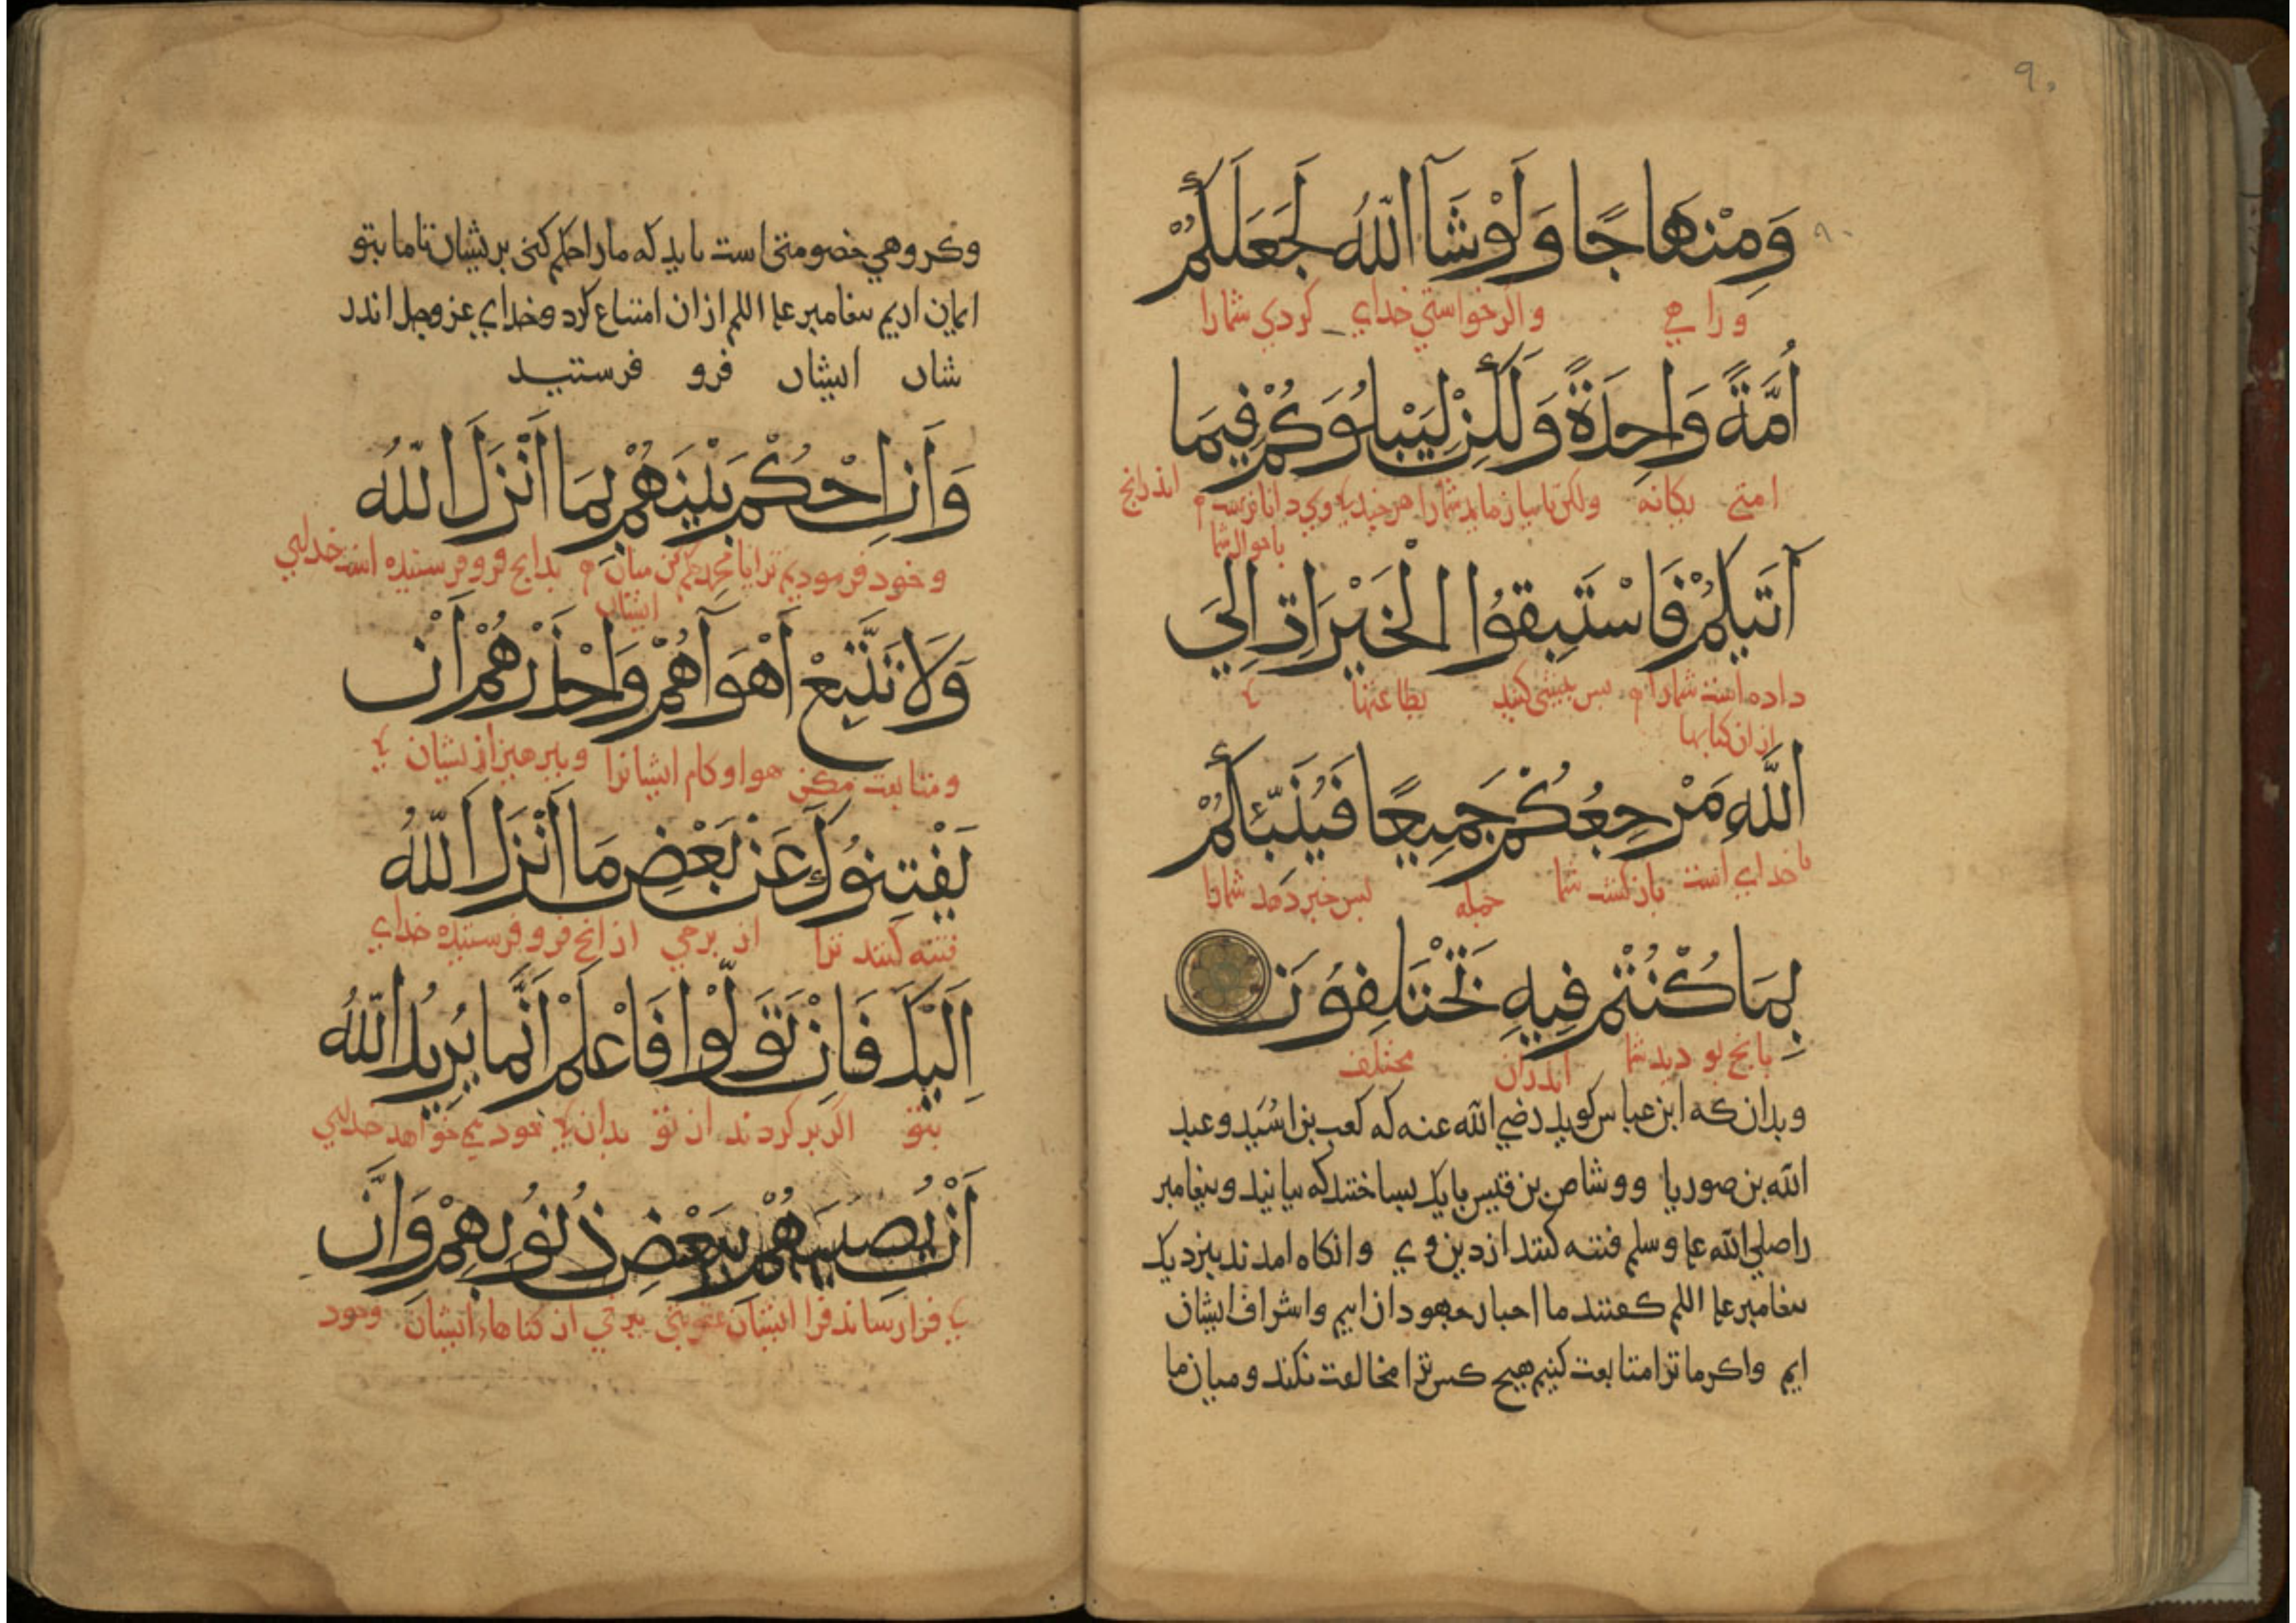 ۹۰
وَمِنْهَاجًا وَلَوْ شَآ اللّٰهُ لَجَعَلَكُمْ
۹۰
و راهي واگر خواستي خداي کردي شمارا
اُمَّةً وَاحِدَةً وَلَكِنْ لِيَبْلُوَكُمْ فِيمَا
امتي يکانه ولکن تا بيازمايد شمارا هرچند کي وي داناترست اندرانچ
باحوال شما
آتَيكُمْ فَاسْتَبِقُوا الْخَيْرَاتِ اِلَى
داده است شمارا بس بيشي کنيد بطاعتها کي
از ان کتابها
اللَّهِ مَرْجِعُكُمْ جَمِيعًا فَيُنَبِّئُكُمْ
با خداي است بازگشت شما جمله بس خبر دهد شمارا
بِمَا كُنْتُمْ فِيهِ تَخْتَلِفُونَ
بانچ بوديد شما اندران مختلف
وبدان که ابن عباس گويد رضي الله عنه که کعب بن اسُيد وعبد
الله بن صوريا ووشاص بن قيس بايک بساختند که بيانيد وبيغامبر
را صلي الله علىه وسلم فتنه کنند از دين وي وانکاه امدند بنزديک
بيغامبر علىه السلم کفتند ما احبار جهودان ايم واشراف ايشان
ايم واکر ما ترا متابعت کنيم هيچ کس ترا مخالفت نکند وميان ما
وکروهي خصومتي است بايد که مارا حکم کني بريشان تا ما بتو
ايمان اريم بيغامبر علىه السلم از ان امتناع کرد وخداي عز وجل اندر
شان ايشان فرو فرستيد
وَأَنِ احْكُمْ بَيْنَهُمْ بِمَا اَنْزَلَ اللّٰهُ
وخود فرموديم ترا يا محمد حکم کن ميان بدانچ فرو فرستيده است خداي
ايشان
وَلَا تَتَّبِعْ اَهْوَآهُمْ وَاحْذَرْهُمْ أَنْ
ومتابعت مکن هوا وکام ايشانرا وببرهيز از يشان کي
يَفْتِنُوكَ عَنْ بَعْضِ مَا اَنْزَلَ اللّٰهُ
فتنه کنند ترا از برخي از انچ فرو فرستيده خداي
اِلَيْكَ فَاِنْ تَوَلَّوْا فَاعْلَمْ اَنَّمَا يُرِيدُ اللّٰهُ
بتو اگر بر کردند از تو بدان کي خود مي خواهد خداي
اَنْ يُصِيبَهُمْ بِبَعْضِ ذُنُوبِهِمْ وَاَنَّ
کي فرا رساند فرا ايشان عقوبتي برخي از کناهاء ايشان وخود